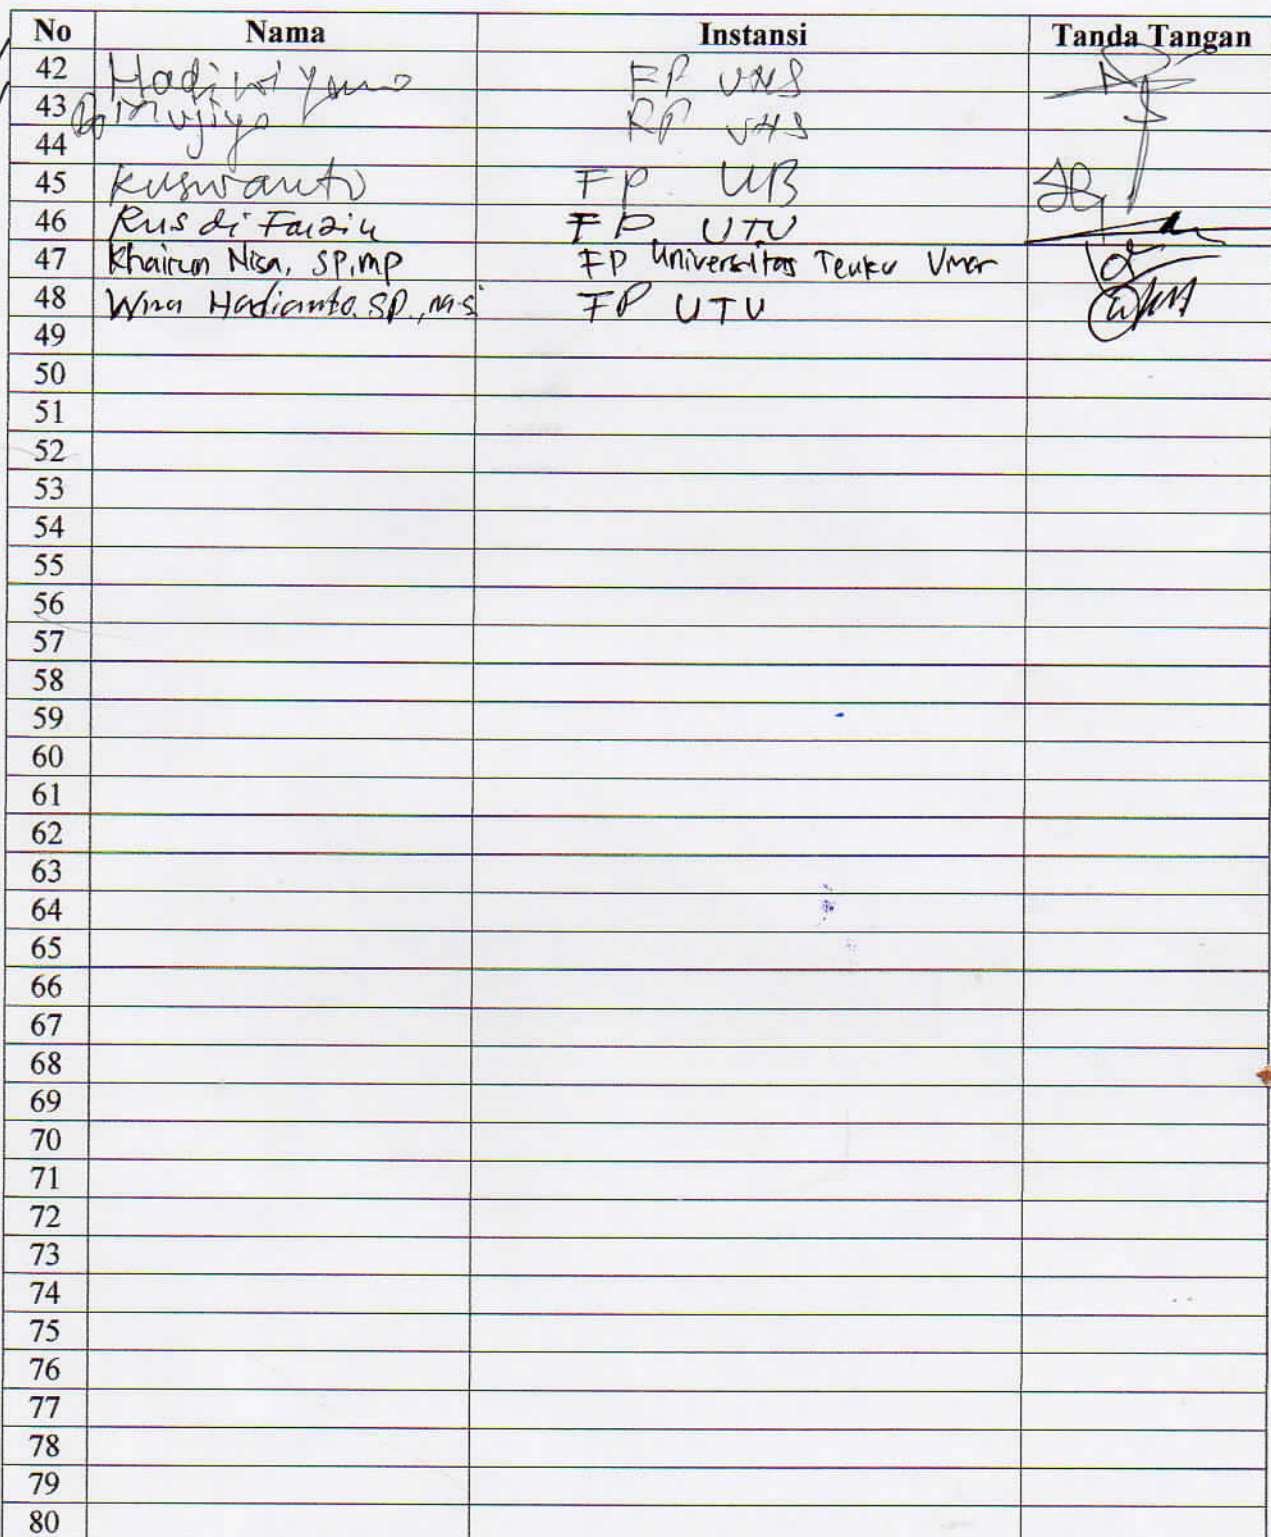 No Nama Instansi Tanda Tangan
42 Hadiwiyono FP UNS
43 Mujiyo FP UNS
44
45 Kuswanto FP UB
46 Rusdi Faizin FP UTU
47 Khairun Nisa, SP, MP FP Universitas Teuku Umar
48 Wira Hadianto. SP., M.Si FP UTU
49
50
51
52
53
54
55
56
57
58
59
60
61
62
63
64
65
66
67
68
69
70
71
72
73
74
75
76
77
78
79
80